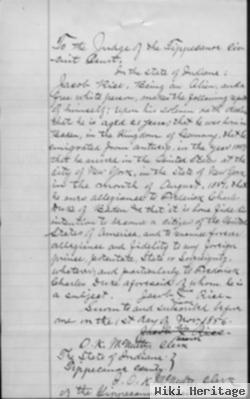 To the Judge of the Tippecanoe Cir-
cuit Court;
In the State of Indiana:
Jacob Rise, Being an Alien, and a
free white person, makes the following report
of himself: upon his solemn oath declares
that he is aged 21 years; that he was born in
Baden, in the Kingdom of Germany, that he
emigrated from Antwerp, in the year
that he arrived in the United States at the
City of New York, in the State of New York
in the month of August, that
he owes allegiance to Frederick Charles
Duke of Baden & that it is bona fide his
intention to become a citizen of the United
States of America, and to renounce forever
allegiance and fidelity to any foreign
prince, potentate, State or Sovereignty,
whatever, and particularly to Frederick
Charles Duke aforesaid of whom he is
a subject. Jacob Rise
Sworn to and subscribed before
me on the 1st day of Nov. 1856.
O. K. McNutt Clerk
The State of Indiana }
Tippecanoe County }
I. O. K. McNutt Clerk
of the
Wiki Heritage